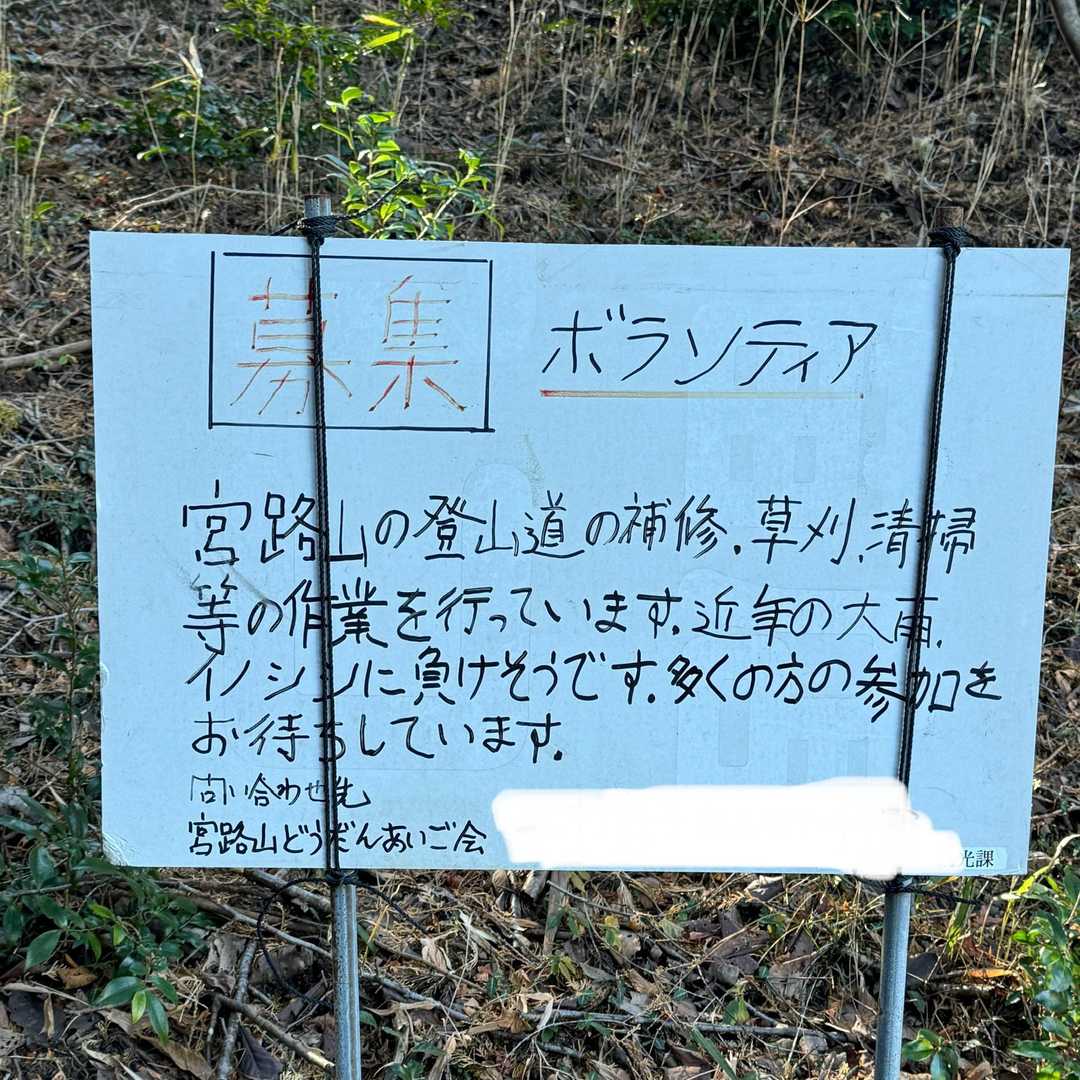 募集 ボランティア
宮路山の登山道の補修、草刈、清掃
等の作業を行っています。近年の大雨、
イノシシに負けそうです。多くの方の参加を
お待ちしています。
問い合わせ先
宮路山どうだんあいご会
光課